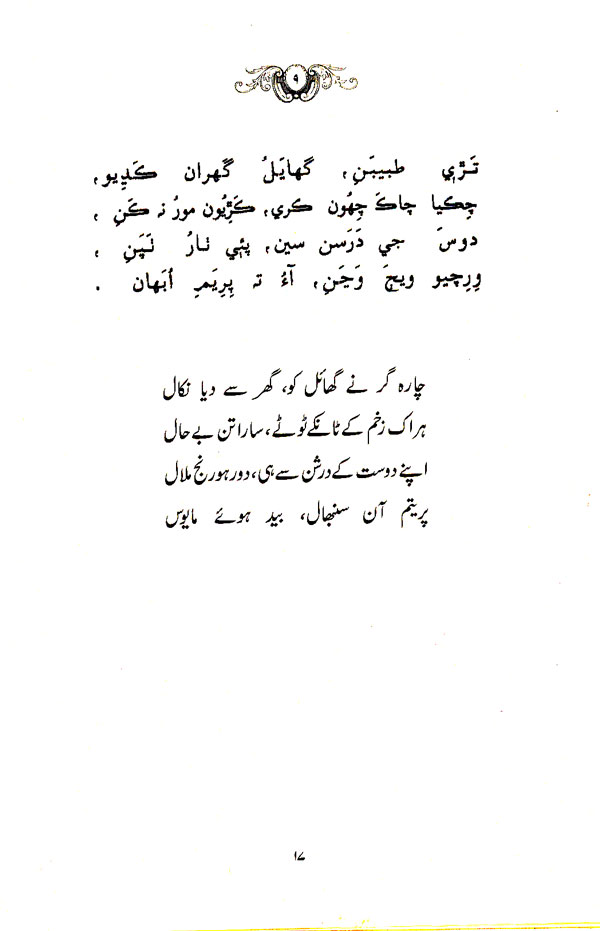 ۹
تَڙي طبيبَنِ، گهايَلُ گَهران ڪَڍِيو،
چِڪيا چاڪَ چِهُون ڪري، ڪَڙِيُون مورُ نہ ڪَنِ،
دوسَ جي دَرَسن سين، پئي تارُ تَپَنِ،
وِرِچيو ويڄَ وَڃَنِ، آءُ تہ پِرِيَمِ اُبَهان.
چارہ گر نے گھائل کو، گھر سے دیا نکال
ہر اک زخم کے ٹانکے ٹوٹے، سارا تن بے حال
اپنے دوست کے درشن سے ہی، دور ہو رنج ملال
پریتم آن سنبھال، بید ہوئے مایوس
۱۷